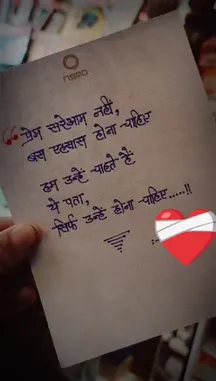 प्रेम सरेआम नहीं,
बस एहसास होना चाहिए
हम उन्हें चाहते हैं
ये पता,
सिर्फ उन्हें होना चाहिए.....!!